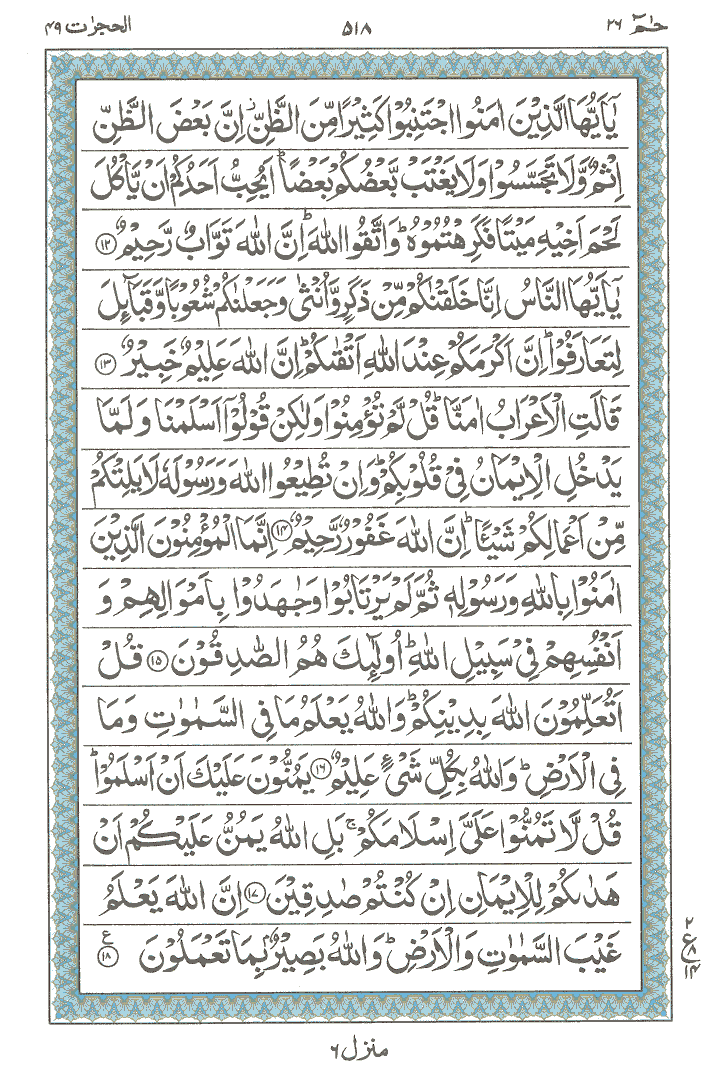 حٰمٓ ۲۶
۵۱۸
الحجرٰت ۴۹
يٰٓاَيُّهَا الَّذِيْنَ اٰمَنُوا اجْتَنِبُوْا كَثِيْرًا مِّنَ الظَّنِّ ۡ اِنَّ بَعْضَ الظَّنِّ
اِثْمٌ وَّلَا تَجَسَّسُوْا وَلَا يَغْتَبْ بَّعْضُكُمْ بَعْضًا ؕ اَيُحِبُّ اَحَدُكُمْ اَنْ يَّاْكُلَ
لَحْمَ اَخِيْهِ مَيْتًا فَكَرِهْتُمُوْهُ ؕ وَاتَّقُوا اللّٰهَ ؕ اِنَّ اللّٰهَ تَوَّابٌ رَّحِيْمٌ ۝۱۲
يٰٓاَيُّهَا النَّاسُ اِنَّا خَلَقْنٰكُمْ مِّنْ ذَكَرٍ وَّاُنْثٰى وَجَعَلْنٰكُمْ شُعُوْبًا وَّقَبَآئِلَ
لِتَعَارَفُوْا ؕ اِنَّ اَكْرَمَكُمْ عِنْدَ اللّٰهِ اَتْقٰىكُمْ ؕ اِنَّ اللّٰهَ عَلِيْمٌ خَبِيْرٌ ۝۱۳
قَالَتِ الْاَعْرَابُ اٰمَنَّا ؕ قُلْ لَّمْ تُؤْمِنُوْا وَلٰكِنْ قُوْلُوْٓا اَسْلَمْنَا وَلَمَّا
يَدْخُلِ الْاِيْمَانُ فِيْ قُلُوْبِكُمْ ؕ وَاِنْ تُطِيْعُوا اللّٰهَ وَرَسُوْلَهٗ لَا يَلِتْكُمْ
مِّنْ اَعْمَالِكُمْ شَيْـًٔا ؕ اِنَّ اللّٰهَ غَفُوْرٌ رَّحِيْمٌ ۝۱۴ اِنَّمَا الْمُؤْمِنُوْنَ الَّذِيْنَ
اٰمَنُوْا بِاللّٰهِ وَرَسُوْلِهٖ ثُمَّ لَمْ يَرْتَابُوْا وَجٰهَدُوْا بِاَمْوَالِهِمْ وَ
اَنْفُسِهِمْ فِيْ سَبِيْلِ اللّٰهِ ؕ اُولٰٓئِكَ هُمُ الصّٰدِقُوْنَ ۝۱۵ قُلْ
اَتُعَلِّمُوْنَ اللّٰهَ بِدِيْنِكُمْ ؕ وَاللّٰهُ يَعْلَمُ مَا فِي السَّمٰوٰتِ وَمَا
فِي الْاَرْضِ ؕ وَاللّٰهُ بِكُلِّ شَيْءٍ عَلِيْمٌ ۝۱۶ يَمُنُّوْنَ عَلَيْكَ اَنْ اَسْلَمُوْا ؕ
قُلْ لَّا تَمُنُّوْا عَلَيَّ اِسْلَامَكُمْ ۚ بَلِ اللّٰهُ يَمُنُّ عَلَيْكُمْ اَنْ
هَدٰىكُمْ لِلْاِيْمَانِ اِنْ كُنْتُمْ صٰدِقِيْنَ ۝۱۷ اِنَّ اللّٰهَ يَعْلَمُ
غَيْبَ السَّمٰوٰتِ وَالْاَرْضِ ؕ وَاللّٰهُ بَصِيْرٌۢ بِمَا تَعْمَلُوْنَ ۝۱۸ ع
۲
ع ۸
۱۴
منزل ۶